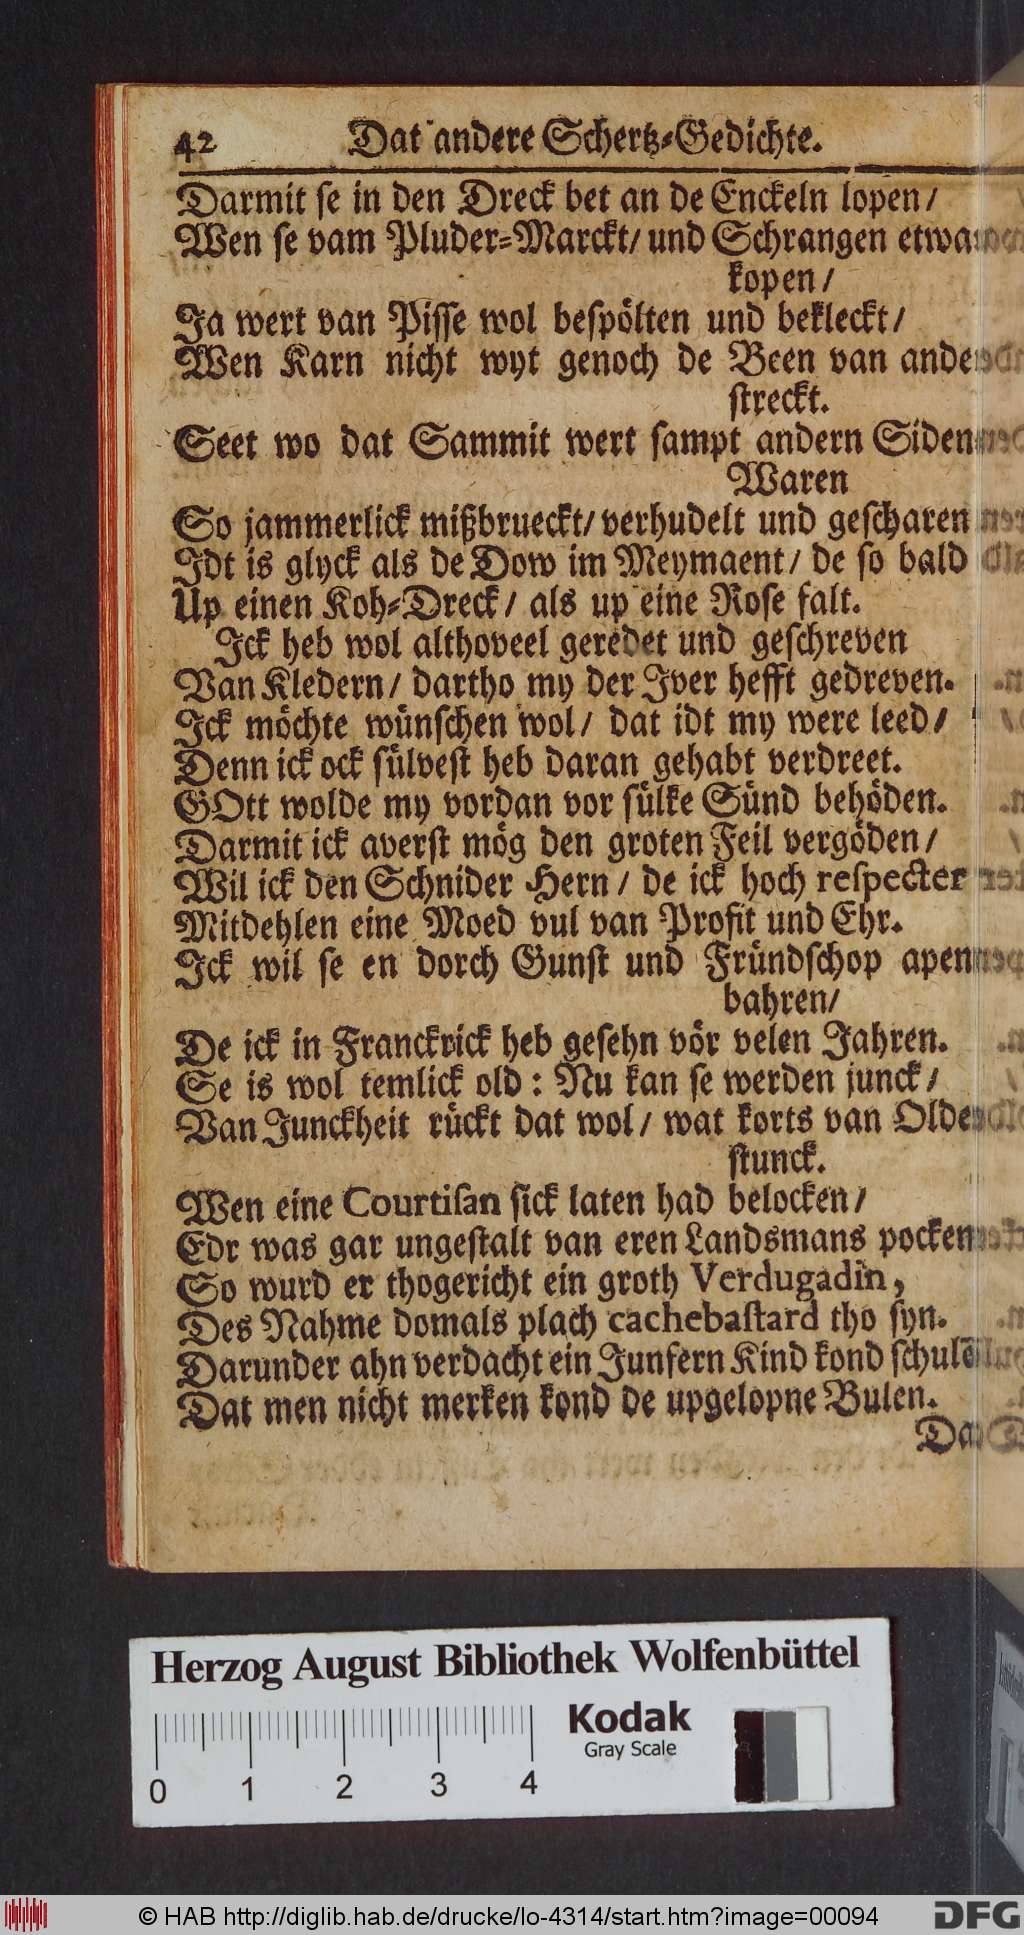 42 Dat andere Schertz-Gedichte.
Darmit se in den Dreck bet an de Enckeln lopen /
Wen se vam Pluder-Marckt / und Schrangen etwa
kopen /
Ja wert van Pisse wol bespölten und bekleckt /
Wen Karn nicht wyt genoch de Been van ander
streckt.
Seet wo dat Sammit wert sampt andern Siden
Waren
So jammerlick mißbrueckt / verhudelt und gescharen
Idt is glyck als de Dow im Meymaent / de so bald
Up einen Koh-Dreck / als up eine Rose falt.
Ick heb wol althoveel geredet und geschreven
Van Kledern / dartho my der Iver hefft gedreven.
Ick möchte wünschen wol / dat idt my were leed /
Denn ick ock sülvest heb daran gehabt verdreet.
GOtt wolde my vordan vor sülke Sünd behöden.
Darmit ick averst mög den groten Feil vergöden /
Wil ick den Schnider Hern / de ick hoch respecter
Mitdehlen eine Moed vul van Profit und Ehr.
Ick wil se en dorch Gunst und Fründschop apen
bahren /
De ick in Franckrick heb gesehn vör velen Jahren.
Se is wol temlick old : Nu kan se werden junck /
Van Junckheit rückt dat wol / wat korts van Older
stunck.
Wen eine Courtisan sick laten had belocken /
Edr was gar ungestalt van eren Landsmans pocken
So wurd er thogericht ein groth Verdugadin,
Des Nahme domals plach cachebastard tho syn.
Darunder ahn verdacht ein Junfern Kind kond schulē
Dat men nicht merken kond de upgelopne Bulen.
Da
Herzog August Bibliothek Wolfenbüttel
Kodak
Gray Scale
0 1 2 3 4
© HAB http://diglib.hab.de/drucke/lo-4314/start.htm?image=00094
DFG